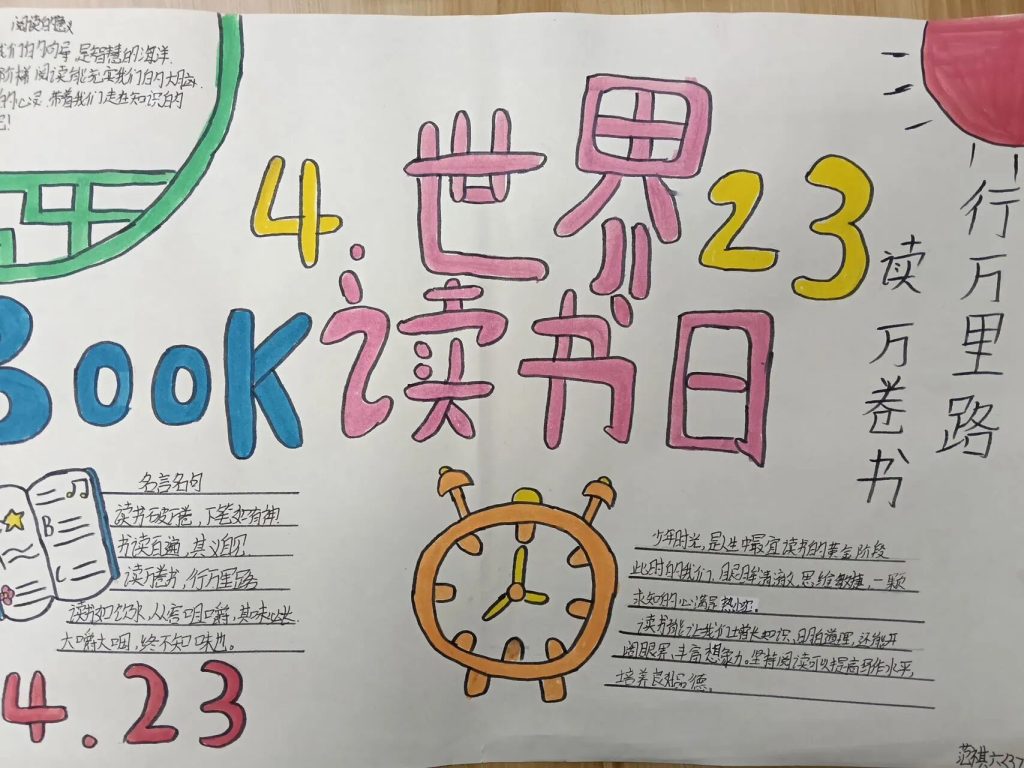 阅读的意义
我们的向导,是智慧的海洋.
阶梯阅读能充实我们的大脑.
的心灵.带着我们走在知识的
4.23
世界
读书日
BOOK
行万里路
读万卷书
名言名句
读书破万卷,下笔如有神!
书读百遍,其义自见.
读万卷书,行万里路
读书如饮水,从容咀嚼,其味必长
大嚼大咽,终不知味也.
B
C
少年时光,是人生中最宜读书的黄金阶段
此时的我们,眼眸清澈,思维敏捷,一颗
求知的心满是热忱.
读书能让我们增长知识,明白道理,还能开
阔眼界,丰富想象力.坚持阅读可以提高写作水平,
培养良好品德.
4.23